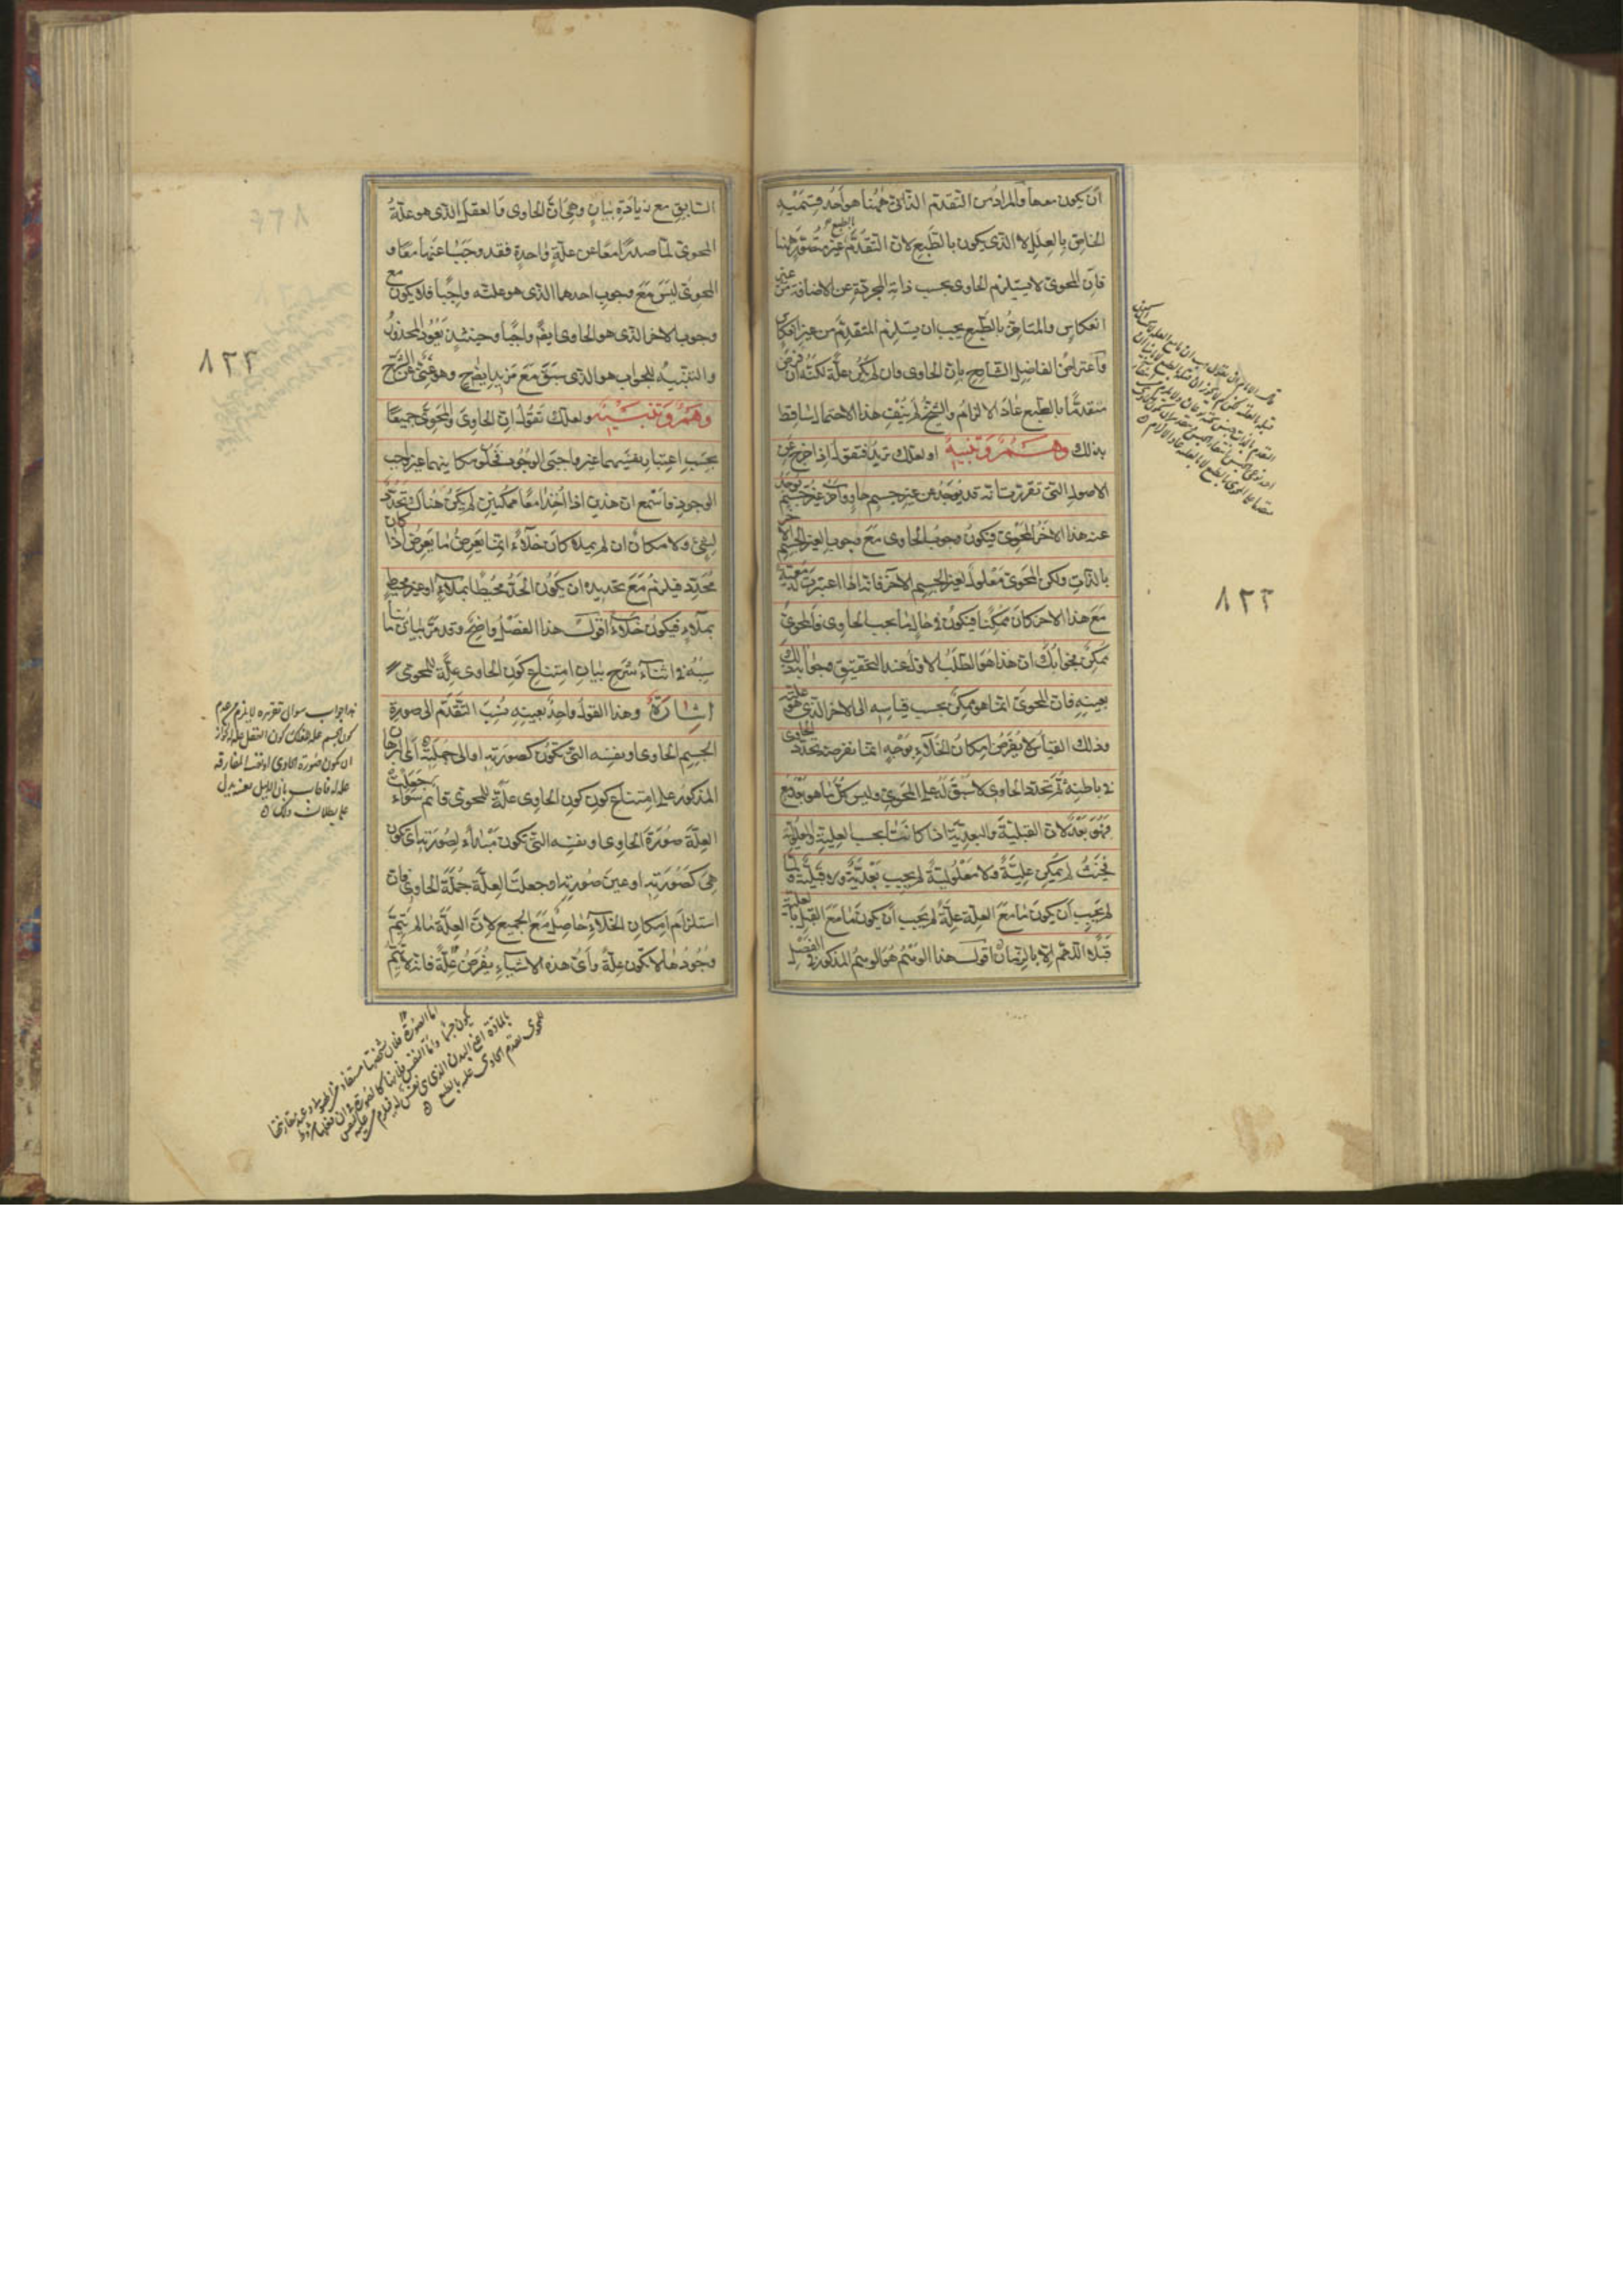 ان يكون معها والمراد من التقدم الذاتى ههنا هو احد قسميه
الخاص بالعلل لا الذى يكون بالطبع لان التقدم بالطبع غير متصور ههنا
فان المحوى لا يستلزم الحاوى بحسب ذاته المجردة عن الاضافة من غير
انعكاس والمتاخر بالطبع يجب ان يستلزم المتقدم من غير انعكاس
واعتراض الفاضل الشارح بان الحاوى وان لم يكن علة لكنه ان فرض
متقدما بالطبع عاد الالزام والشيخ لم ينف هذا الاحتمال ساقط
بذلك وهم وتنبيه او لعلك تزيد فتقول اذا خرج عن
الاصول التى تقررت انه قد يوجد عن غير جسم حاو واخر غير جسم يوجد
عنه هذا الاخر المحوى فيكون وجوب الحاوى مع وجوب الغير الجسم الاخر
بالذات ولكن المحوى معلول لغير الجسم الاخر فانه اذا اعتبرت له معية
مع هذا الاخر كان ممكنا فيكون فى حال ما يجب الحاوى فالمحوى
ممكن فجوابك ان هذا هو الطلب الاول عند التحقيق وجوابه ذلك
بعينه فان المحوى انما هو ممكن بحسب قياسه الى الاخر الذى هو علته
وذلك القياس لا يفرض امكان الخلاء بوجه انما يفرضه تحدد الحاوى
فى باطنه ثم تحدد الحاوى لا سبق له على المحوى وليس كل ما هو بعد مع
فهو بعد لان القبلية والبعدية اذا كانت بحسب العلية والمعلولية
فحيث لم يكن علية ولا معلولية لم يجب بعدية ولا قبلية ولما
لم يجب ان يكون ما مع العلة علة لم يجب ان يكون ما مع القبل بالعلية
قبلا اللهم الا بالزمان اقول هذا الوهم هو الوهم المذكور فى الفصل
٨٢٢
السابق مع زيادة بيان وهى ان الحاوى والعقل الذى هو علة
المحوى لما صدرا معا عن علة واحدة فقد وجبا عنها معا و
المحوى ليس مع وجوب احدهما الذى هو علته واجبا فلا يكون مع
وجوب الاخر الذى هو الحاوى ايضا واجبا وحينئذ يعود المحذور
والتنبيه للجواب هو الذى سبق مع مزيد ايضاح وهو غنى عن الشرح
وهم وتنبيه ولعلك تقول ان الحاوى والمحوى جميعا
بحسب اعتبار نفسيهما غير واجبى الوجود فخلو مكانيهما غير واجب
الوجود فاسمع ان هذين اذا اخذا معا ممكنين لم يكن هناك تحدد
لشئ ولا مكان ان لم يملا كان خلاء انما يعرض ما يعرض اذا كان
محدد فيلزم مع تحديده ان يكون الحد محيطا بملاء او غير محيط
بملاء فيكون خلاء اقول هذا الفصل واضح وقد مر بيان ما
يناسبه فى اثناء شرح بيان امتناع كون الحاوى علة للمحوى
اشارة وهذا القول واحد بعينه نسب التقدم الى صورة
الجسم الحاوى او نفسه التى تكون كصورته او الى جملته اقول البرهان
المذكور على امتناع كون الحاوى علة للمحوى قائم سواء جعلت
العلة صورة الحاوى او نفسه التى تكون مبدأ لصورته اى تكون
هى كصورته او عين صورته او جعلت العلة جملة الحاوى فان
استلزام امكان الخلاء حاصل مع الجميع لان العلة ما لم يتم
وجودها لا تكون علة واى هذه الاشياء يفرض علة فانه لا يتم
٨٢٣
هذا جواب سوال تقريره لا يلزم من عدم
كون الجسم علة للفلك كون العقل علة له لجواز
ان يكون صورة الحاوى او نفسه المفارقة
علة له فاجاب بان الدليل بعينه يدل
على بطلان ذلك